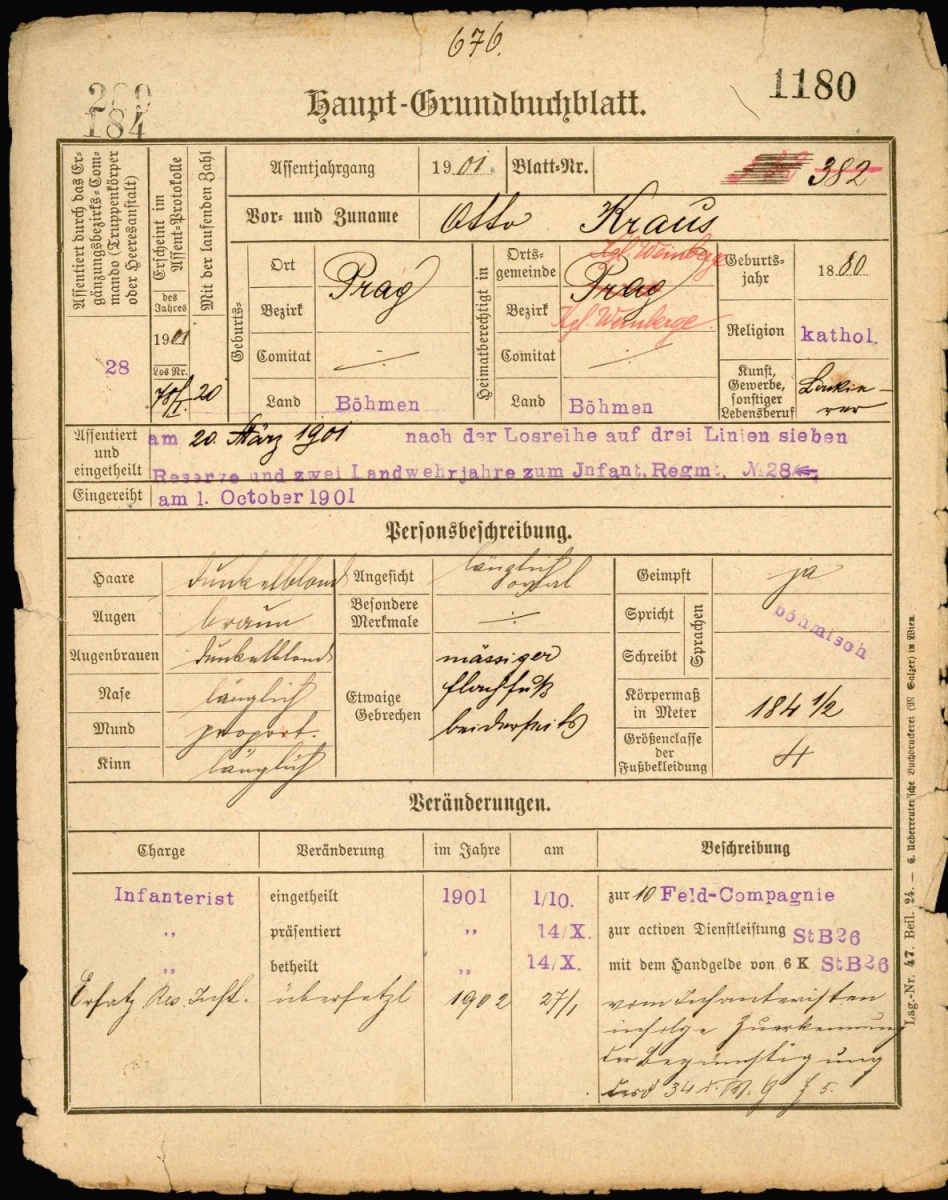 676.
1180
184
Haupt-Grundbuchblatt.
Assentiert durch das Ergänzungsbezirks-Commando (Truppenkörper oder Heeresanstalt)
28
Erscheint im Assent-Protokolle
des Jahres
1901
Los Nr.
Mit der laufenden Zahl
20
Assentjahrgang 1901. Blatt-Nr. 382
Vor- und Zuname Otto Kraus
Geburts-
Ort Prag
Bezirk
Comitat
Land Böhmen
Heimatberechtigt in
Ortsgemeinde Kgl. Weinberge
Prag
Bezirk Kgl. Weinberge.
Comitat
Land Böhmen
Geburtsjahr 1880.
Religion kathol.
Kunst, Gewerbe, sonstiger Lebensberuf Lackierer
Assentiert und eingetheilt
am 20. März 1901 nach der Losreihe auf drei Linien sieben
Reserve und zwei Landwehrjahre zum Jnfant. Regmt. № 28
Eingereiht am 1. October 1901
Personsbeschreibung.
Haare dunkelblond
Augen braun
Augenbrauen dunkelblond
Nase länglich
Mund proport.
Kinn länglich
Angesicht länglich oval
Besondere Merkmale
Etwaige Gebrechen
mässiger
flachfuß
beiderseits
Geimpft ja
Spricht
Schreibt
Sprachen
böhmisch
Körpermaß in Meter 184 1/2
Größenclasse der Fußbekleidung 4
Veränderungen.
Charge Veränderung im Jahre am Beschreibung
Infanterist eingetheilt 1901 1/10. zur 10 Feld-Compagnie
„ präsentiert „ 14/X. zur activen Dienstleistung StB26
„ betheilt „ 14/X. mit dem Handgelde von 6 K StB26
Ersatz Res. Inft. übersetzt 1902 27/1 vom Infanteristen
infolge Zuerkennung
der Begünstigung
des § 34 d. W. G
Lag.-Nr. 47. Beil. 24. — C. Ueberreuter'sche Buchdruckerei (M. Salzer) in Wien.